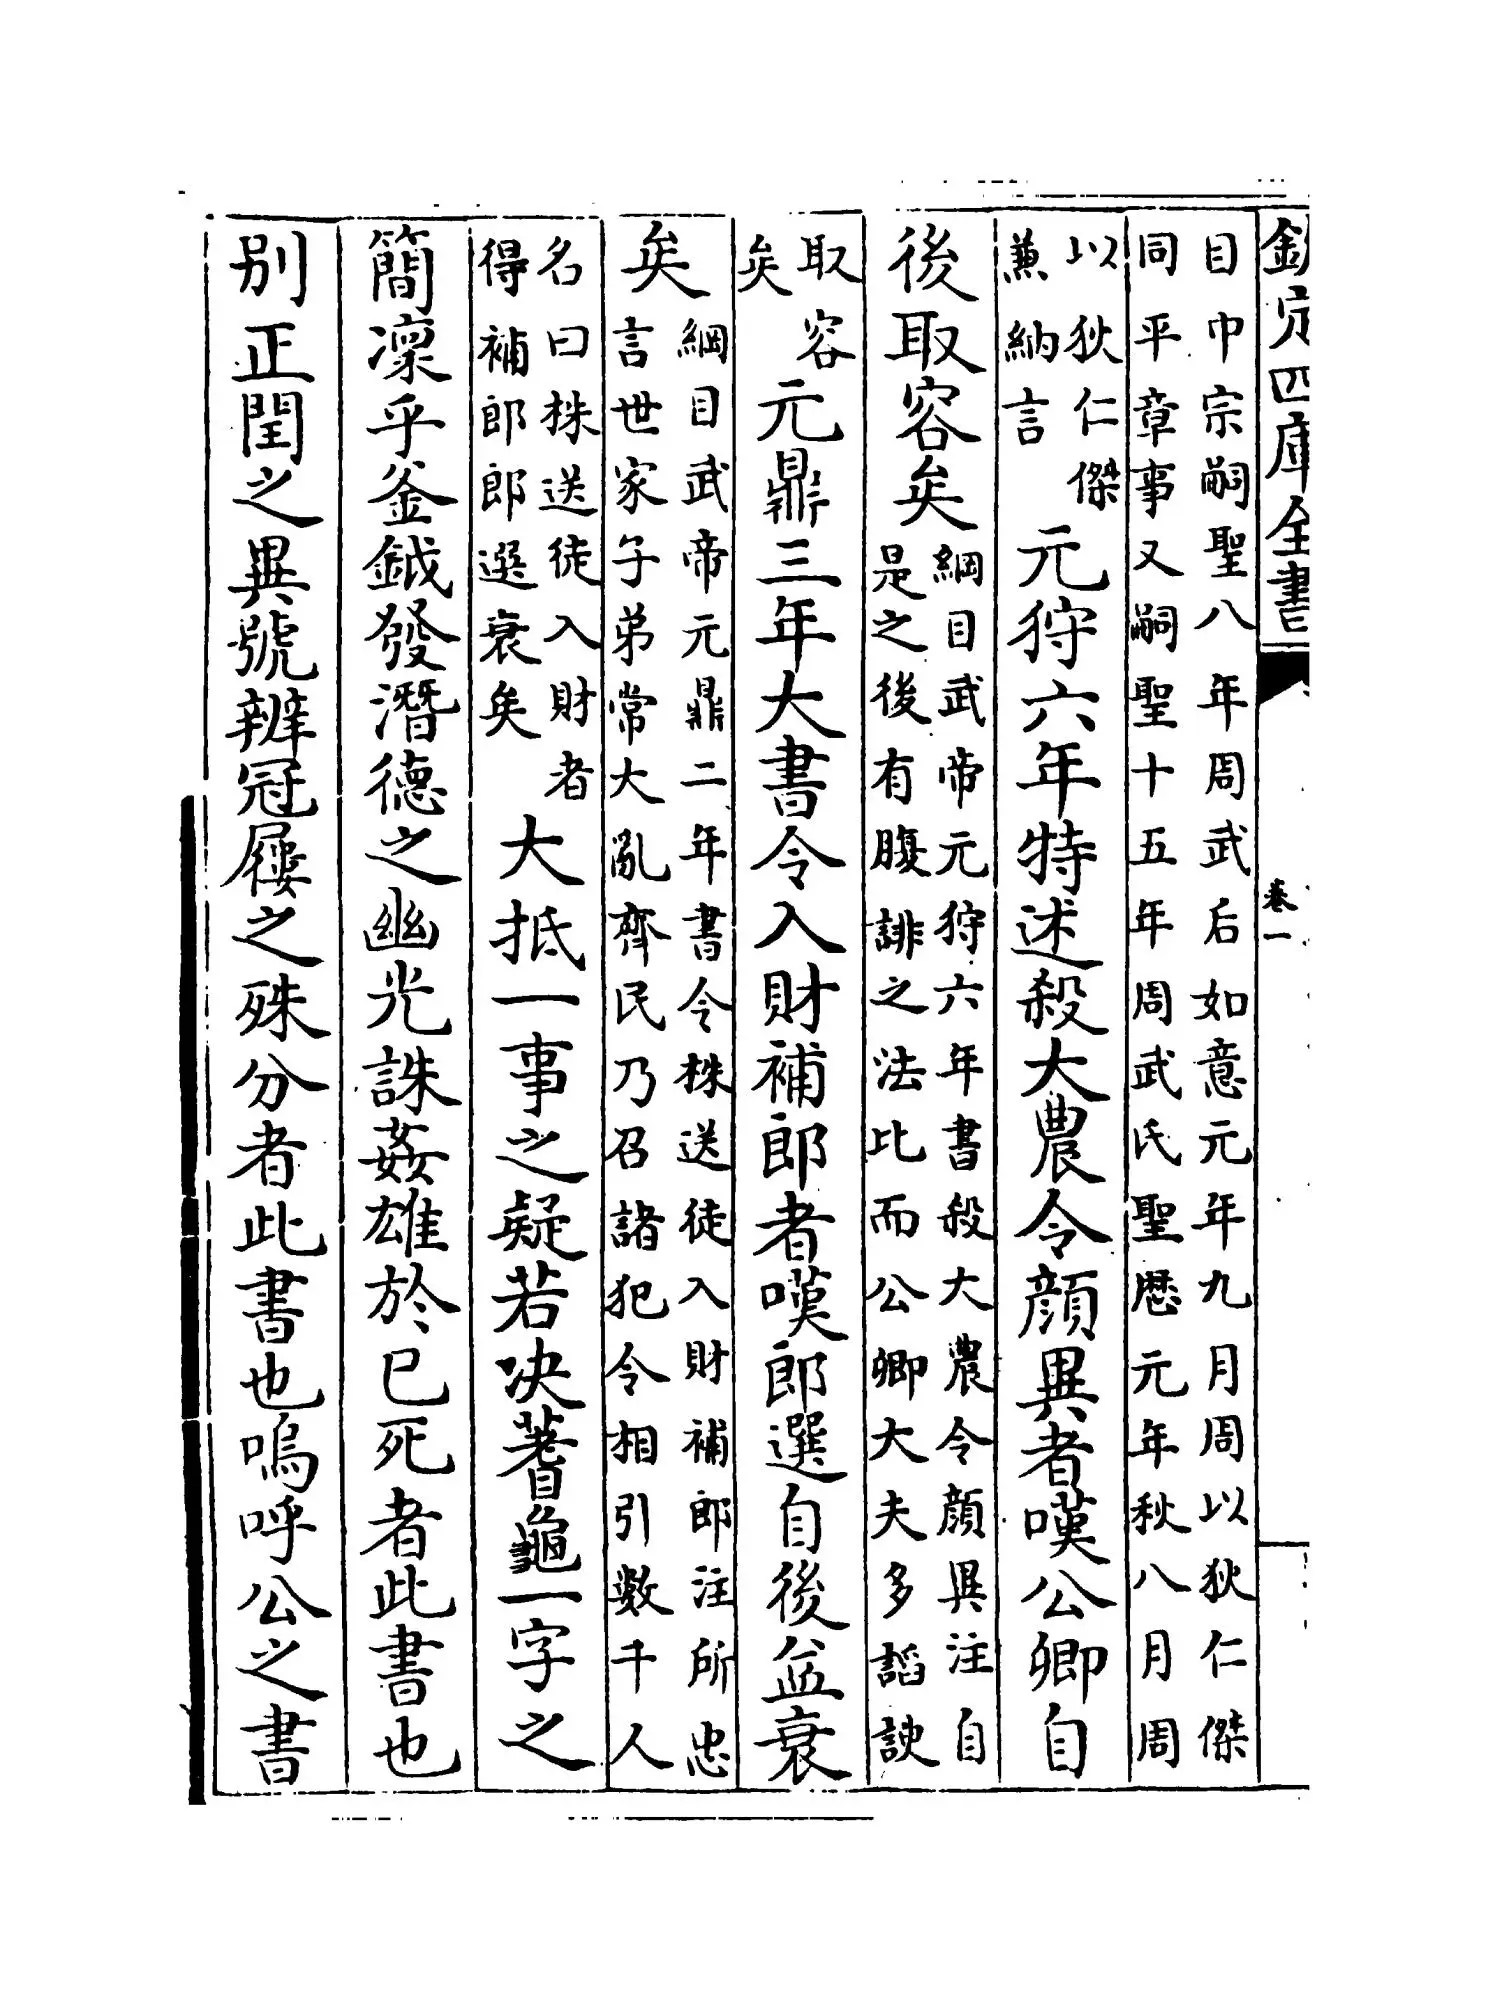 欽定四庫全書 卷一
目中宗嗣聖八年周武后如意元年九月周以狄仁傑
同平章事又嗣聖十五年周武氏聖厯元年秋八月周
以狄仁傑
兼納言
元狩六年特述殺大農令顔異者嘆公卿自
後取容矣
綱目武帝元狩六年書殺大農令顔異注自
是之後有腹誹之法比而公卿大夫多謟諛
取容
矣
元鼎三年大書令入財補郎者嘆郎選自後益衰
矣
綱目武帝元鼎二年書令株送徒入財補郎注所忠
言世家子弟常大亂齊民乃召諸犯令相引數千人
名曰株送徒入財者
得補郎郎選衰矣
大抵一事之疑若决蓍龜一字之
簡凛乎釡鉞發潛德之幽光誅姦雄於已死者此書也
别正閏之異號辨冠屨之殊分者此書也嗚呼公之書